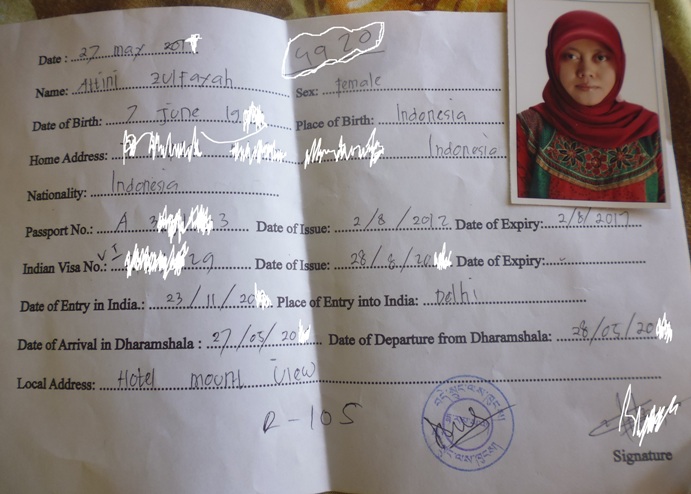 Date : 27 may 201
4920
Name: Attini Zulfayah Sex: female
Date of Birth: 7 June 19 Place of Birth: Indonesia
Home Address: Indonesia
Nationality: Indonesia
Passport No.: A 3 3 Date of Issue: 2/8/2012 Date of Expiry: 2/8/2017
Indian Visa No.: VI 29 Date of Issue: 28/8/20 Date of Expiry:
Date of Entry in India.: 23/11/20 Place of Entry into India: Delhi
Date of Arrival in Dharamshala : 27/05/20 Date of Departure from Dharamshala: 28/05/20
Local Address: Hotel mount view
R-105
Signature